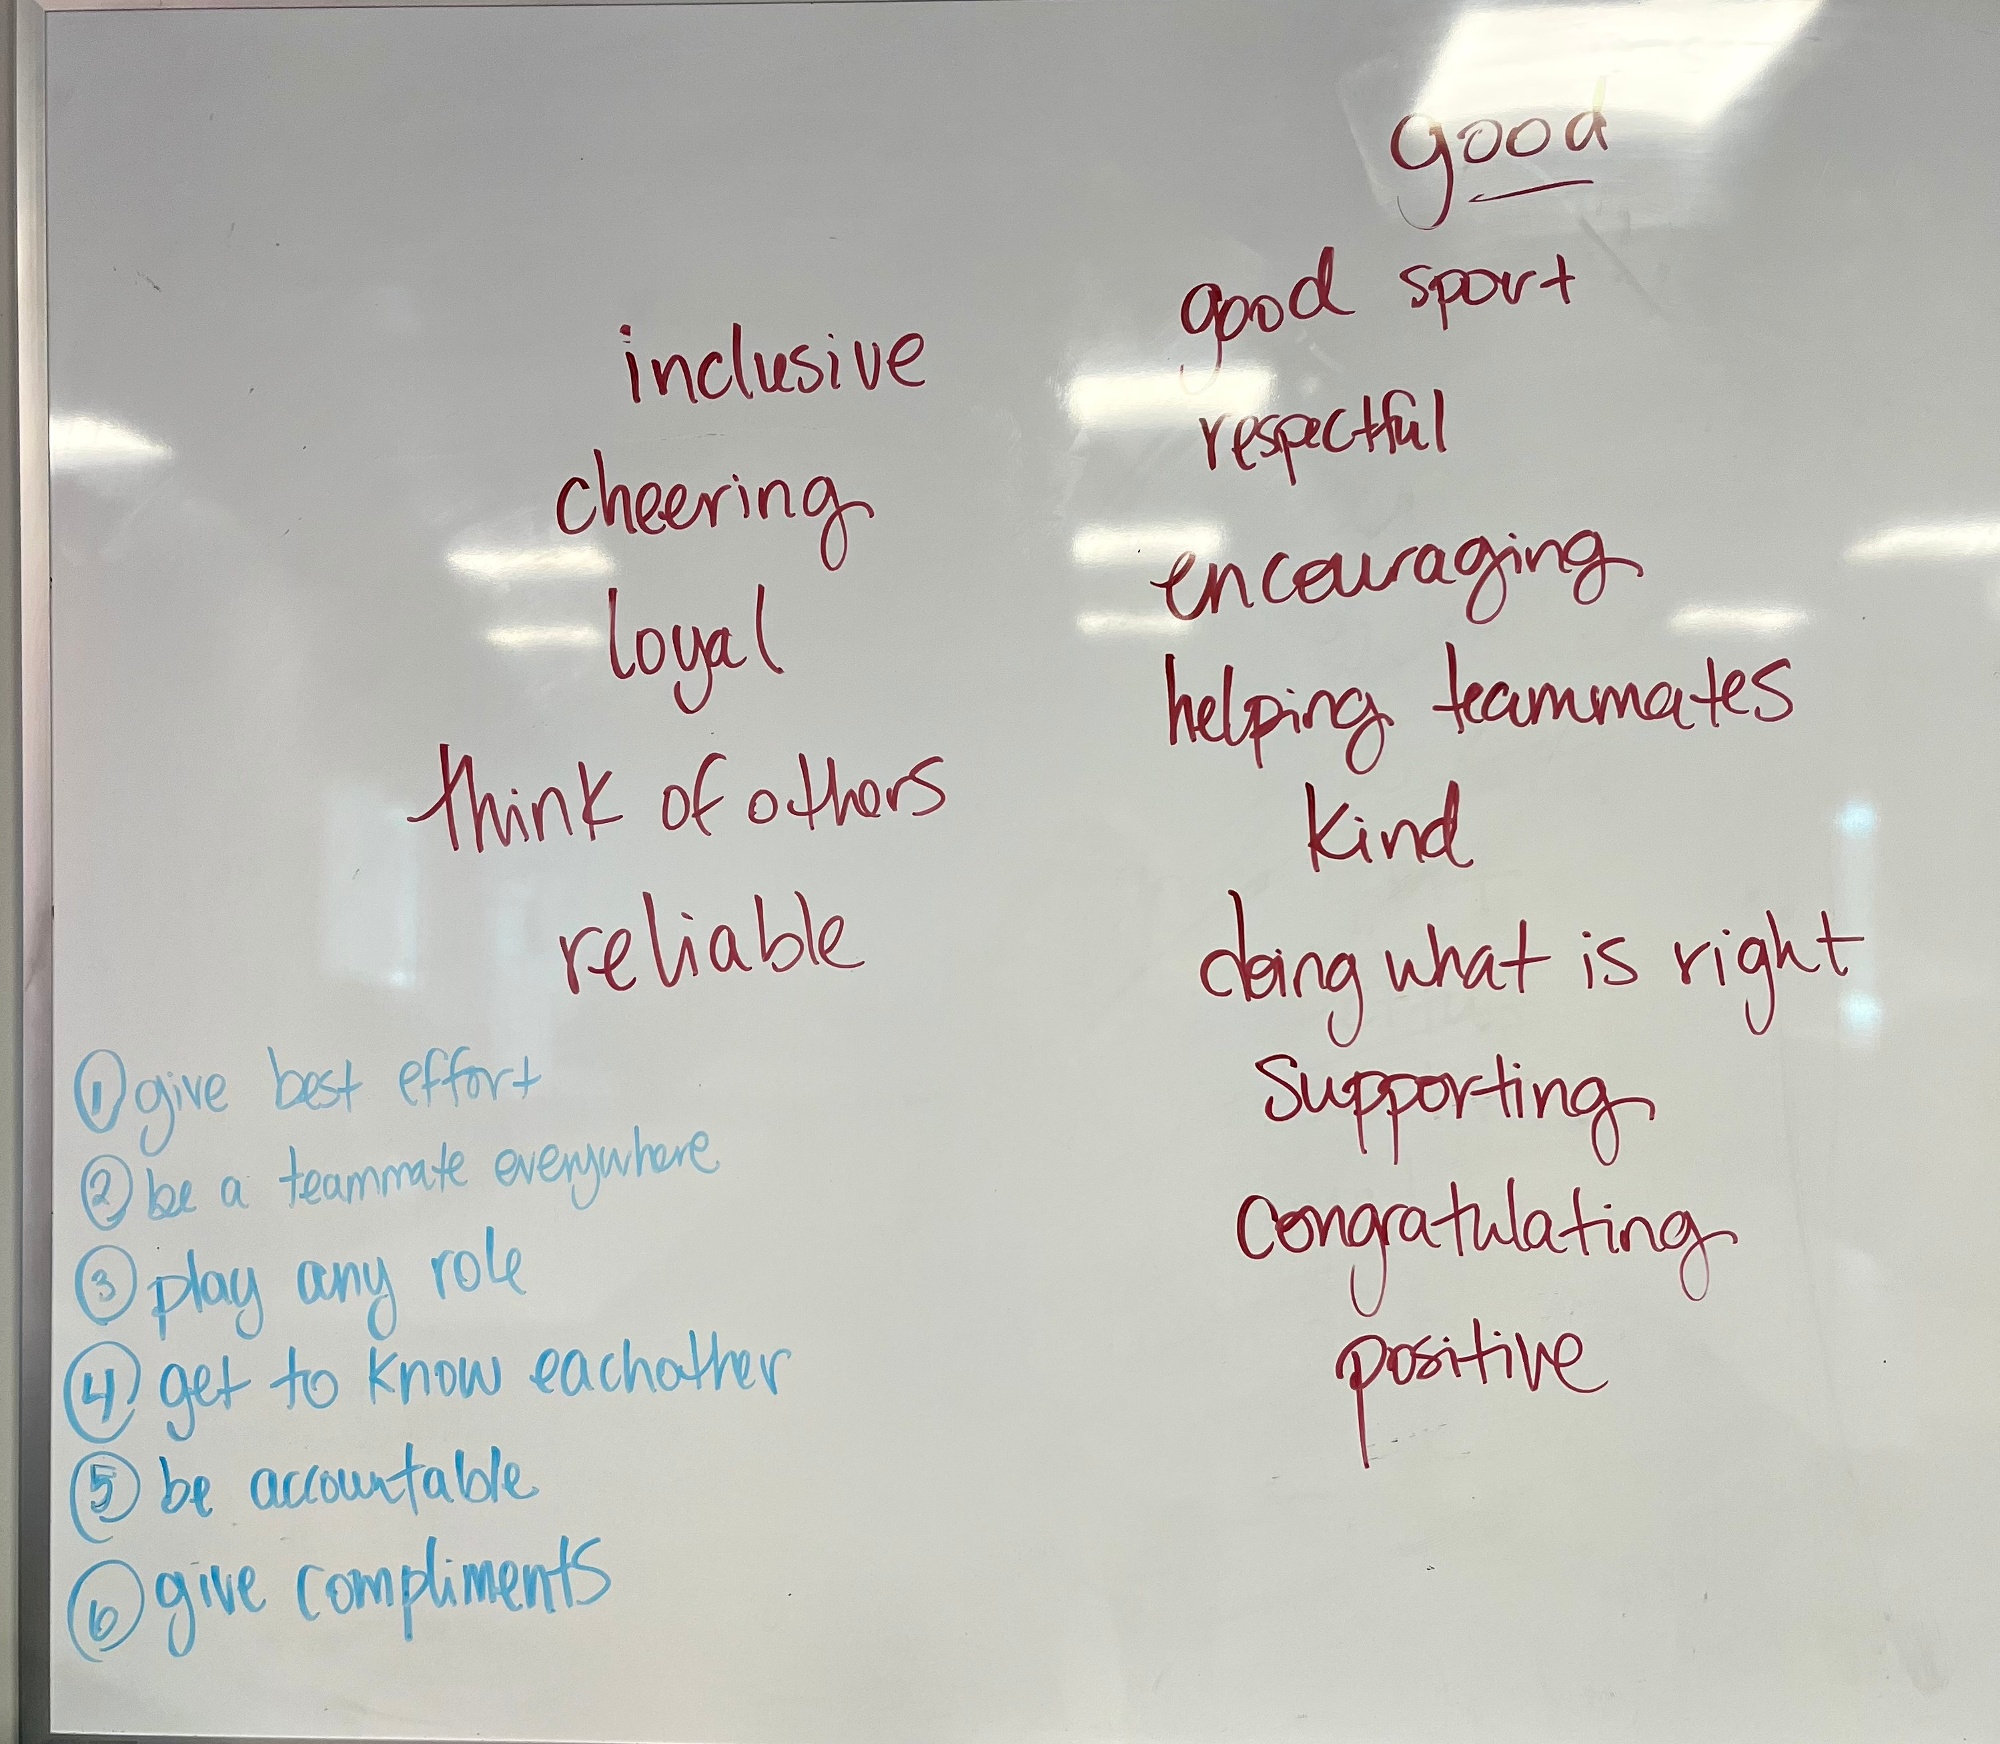 good
good sport
respectful
encouraging
helping teammates
kind
doing what is right
supporting
congratulating
positive
inclusive
cheering
loyal
think of others
reliable
① give best effort
② be a teammate everywhere
③ play any role
④ get to know eachother
⑤ be accountable
⑥ give compliments